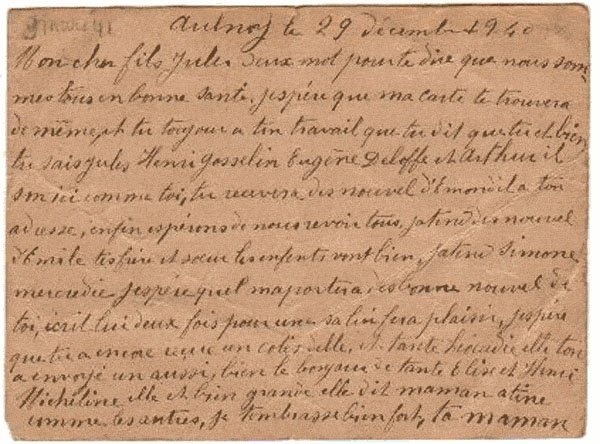 Aulnoy le 29 décembre 1940
Mon cher fils Jules deux mot pour te dire que nous som-
mes tous en bonne santé, jespére que ma carte te trouvera
de même, et tu toujour a ton travail que tu dit que tu et bien
tu sais jules Henri Gosselin Eugène Deloffe et Arthur il
son ici comme toi, tu recevera des nouvel d'Emond il a ton
adresse, enfin espérons de nous revoir tous, jatend des nouvel
d'Emile tes frére et sœur les enfents vont bien, jatend Simone
mercredie jespére quel maportera des bonne nouvel de
toi, ecrit lui deux fois pour une sa lui fera plaisir, jespére
que tu a encore reçue un colis delle, et tante Leocadie elle ton
a envoyé un aussi, bien le bonjour de tante Elise et Henri
Micheline elle et bien grande elle dit maman a tine
comme les autres, je t'embrasse bien fort, ta maman